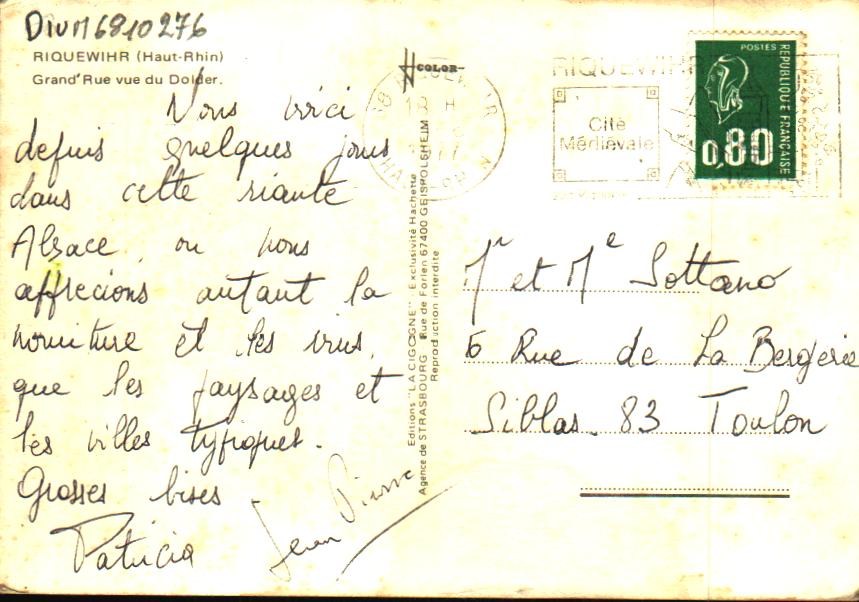 DIVM6810276
RIQUEWIHR (Haut-Rhin)
Grand'Rue vue du Dolder.
Nous voici
depuis quelques jours
dans cette riante
Alsace, où nous
apprécions autant la
nourriture et les vins,
que les paysages et
les villes typiques.
Grosses bises.
Patricia Jean Pierre
HCOLOR
Editions "LA CIGOGNE" - Exclusivité Hachette
Agence de STRASBOURG Rue de Forlen 67400 GEISPOLSHEIM
Reproduction interdite
18 H
RIQUEWIHR
Cité
Médiévale
POSTES
REPUBLIQUE FRANÇAISE
0,80
Mr et Me Sottano
6 Rue de La Bergerie
Siblas. 83 Toulon